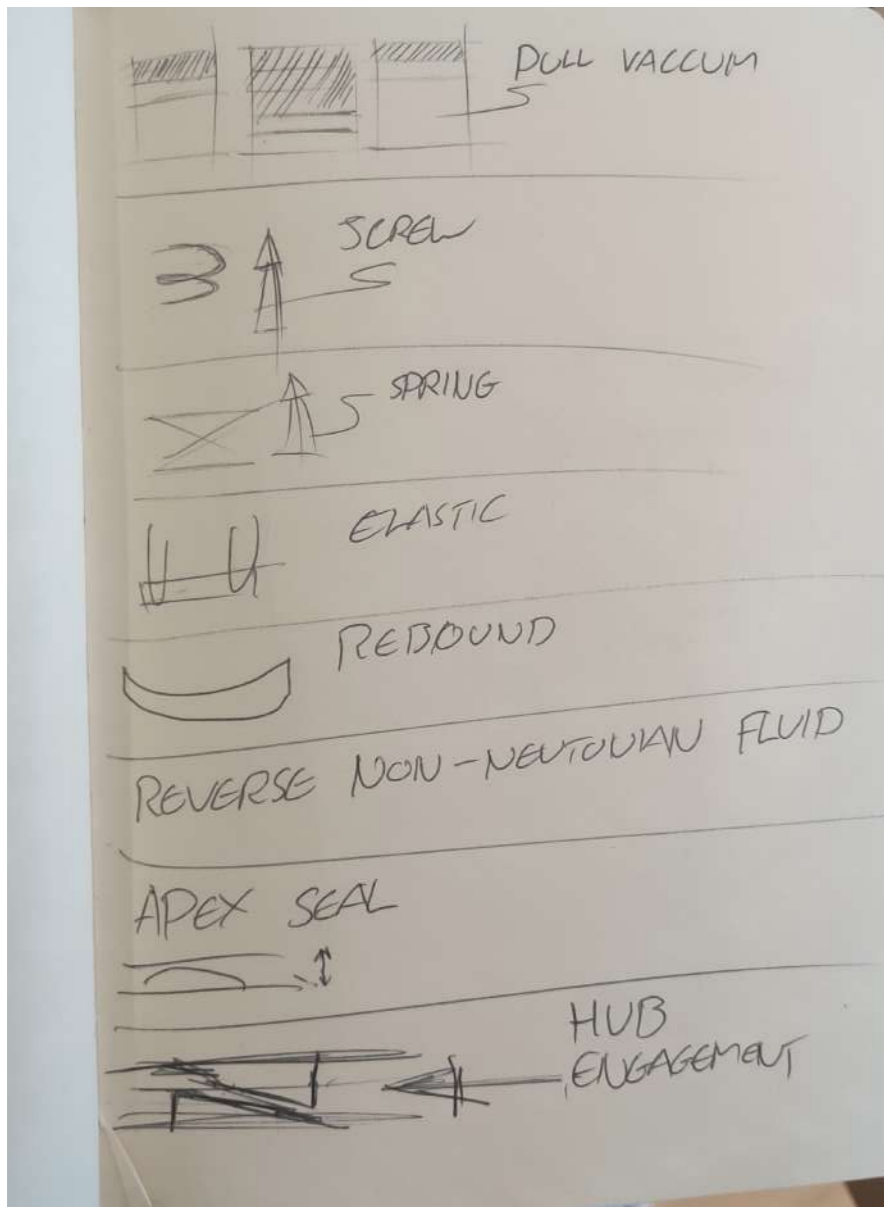 PULL VACCUM
SCREW
SPRING
ELASTIC
REBOUND
REVERSE NON-NEWTONIAN FLUID
APEX SEAL
HUB
ENGAGEMENT